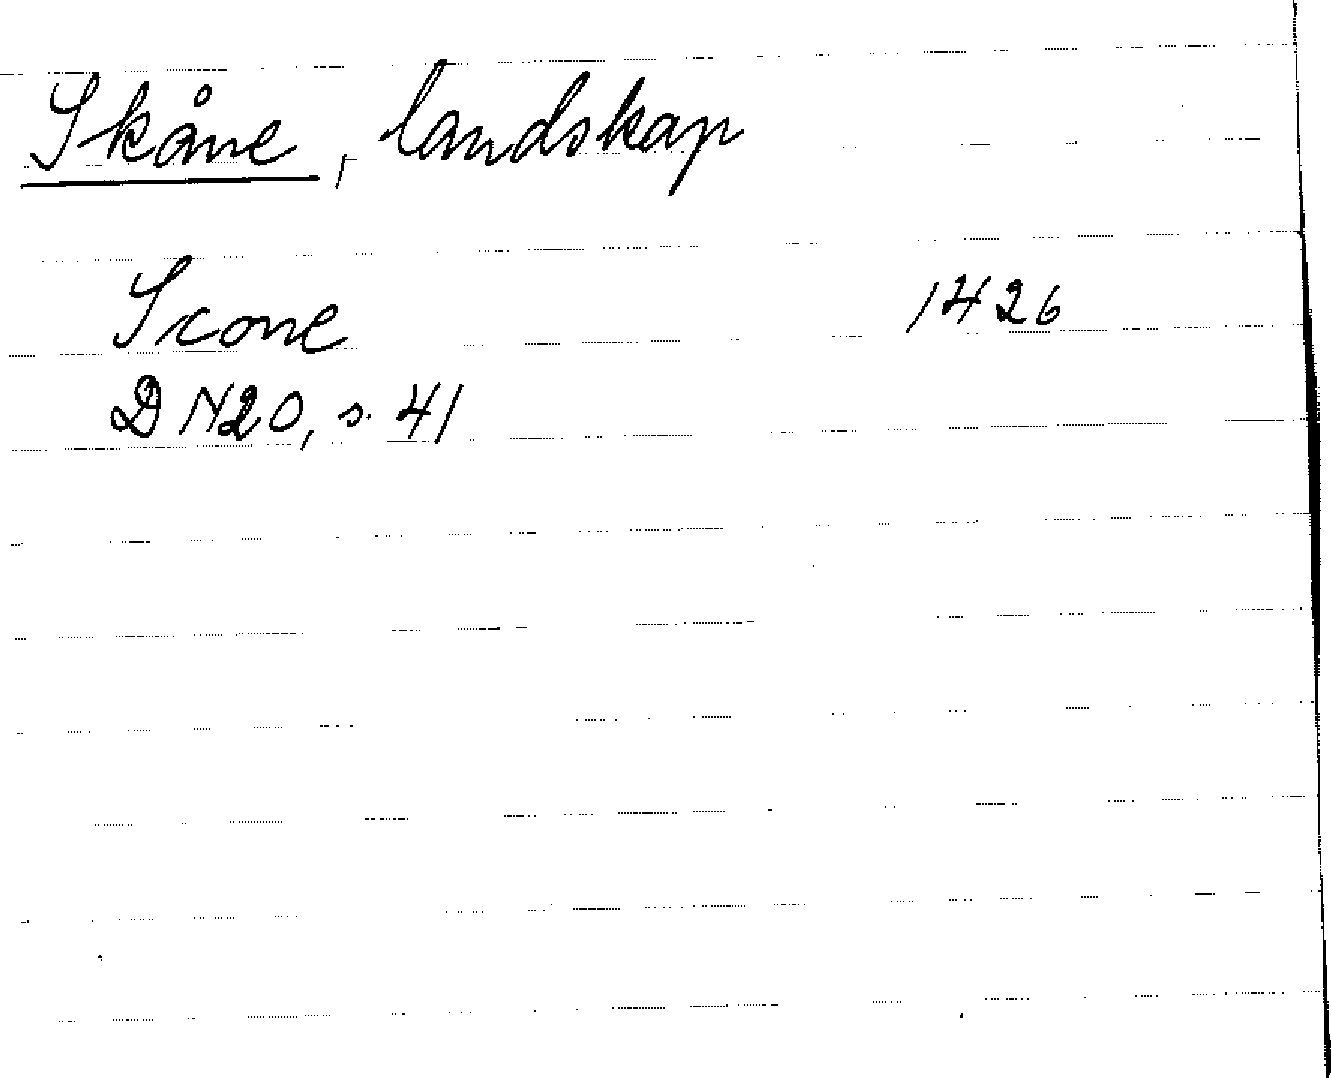 Skåne, landskap
Scone 1426
DN20, s. 41